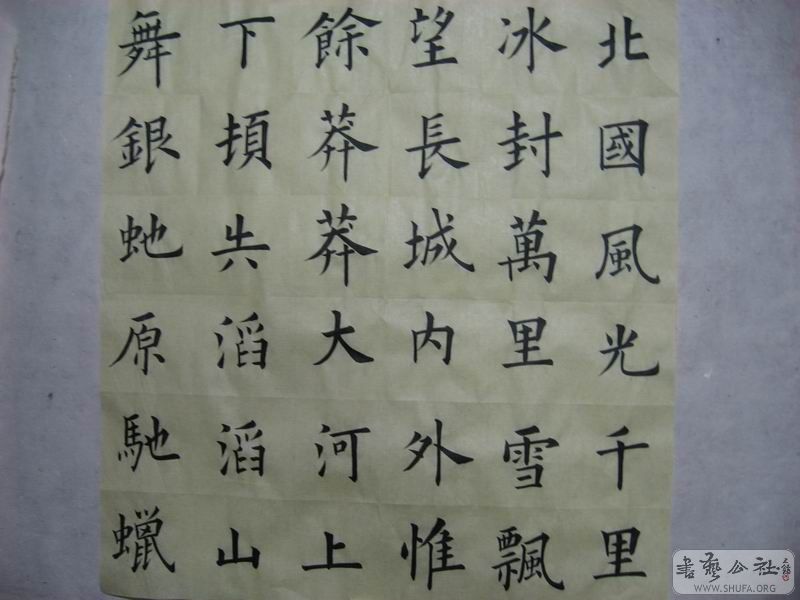 北國風光千里
冰封萬里雪飄
望長城内外惟
餘莽莽大河上
下頓失滔滔山
舞銀虵原馳蠟
書藝公社
WWW.SHUFA.ORG